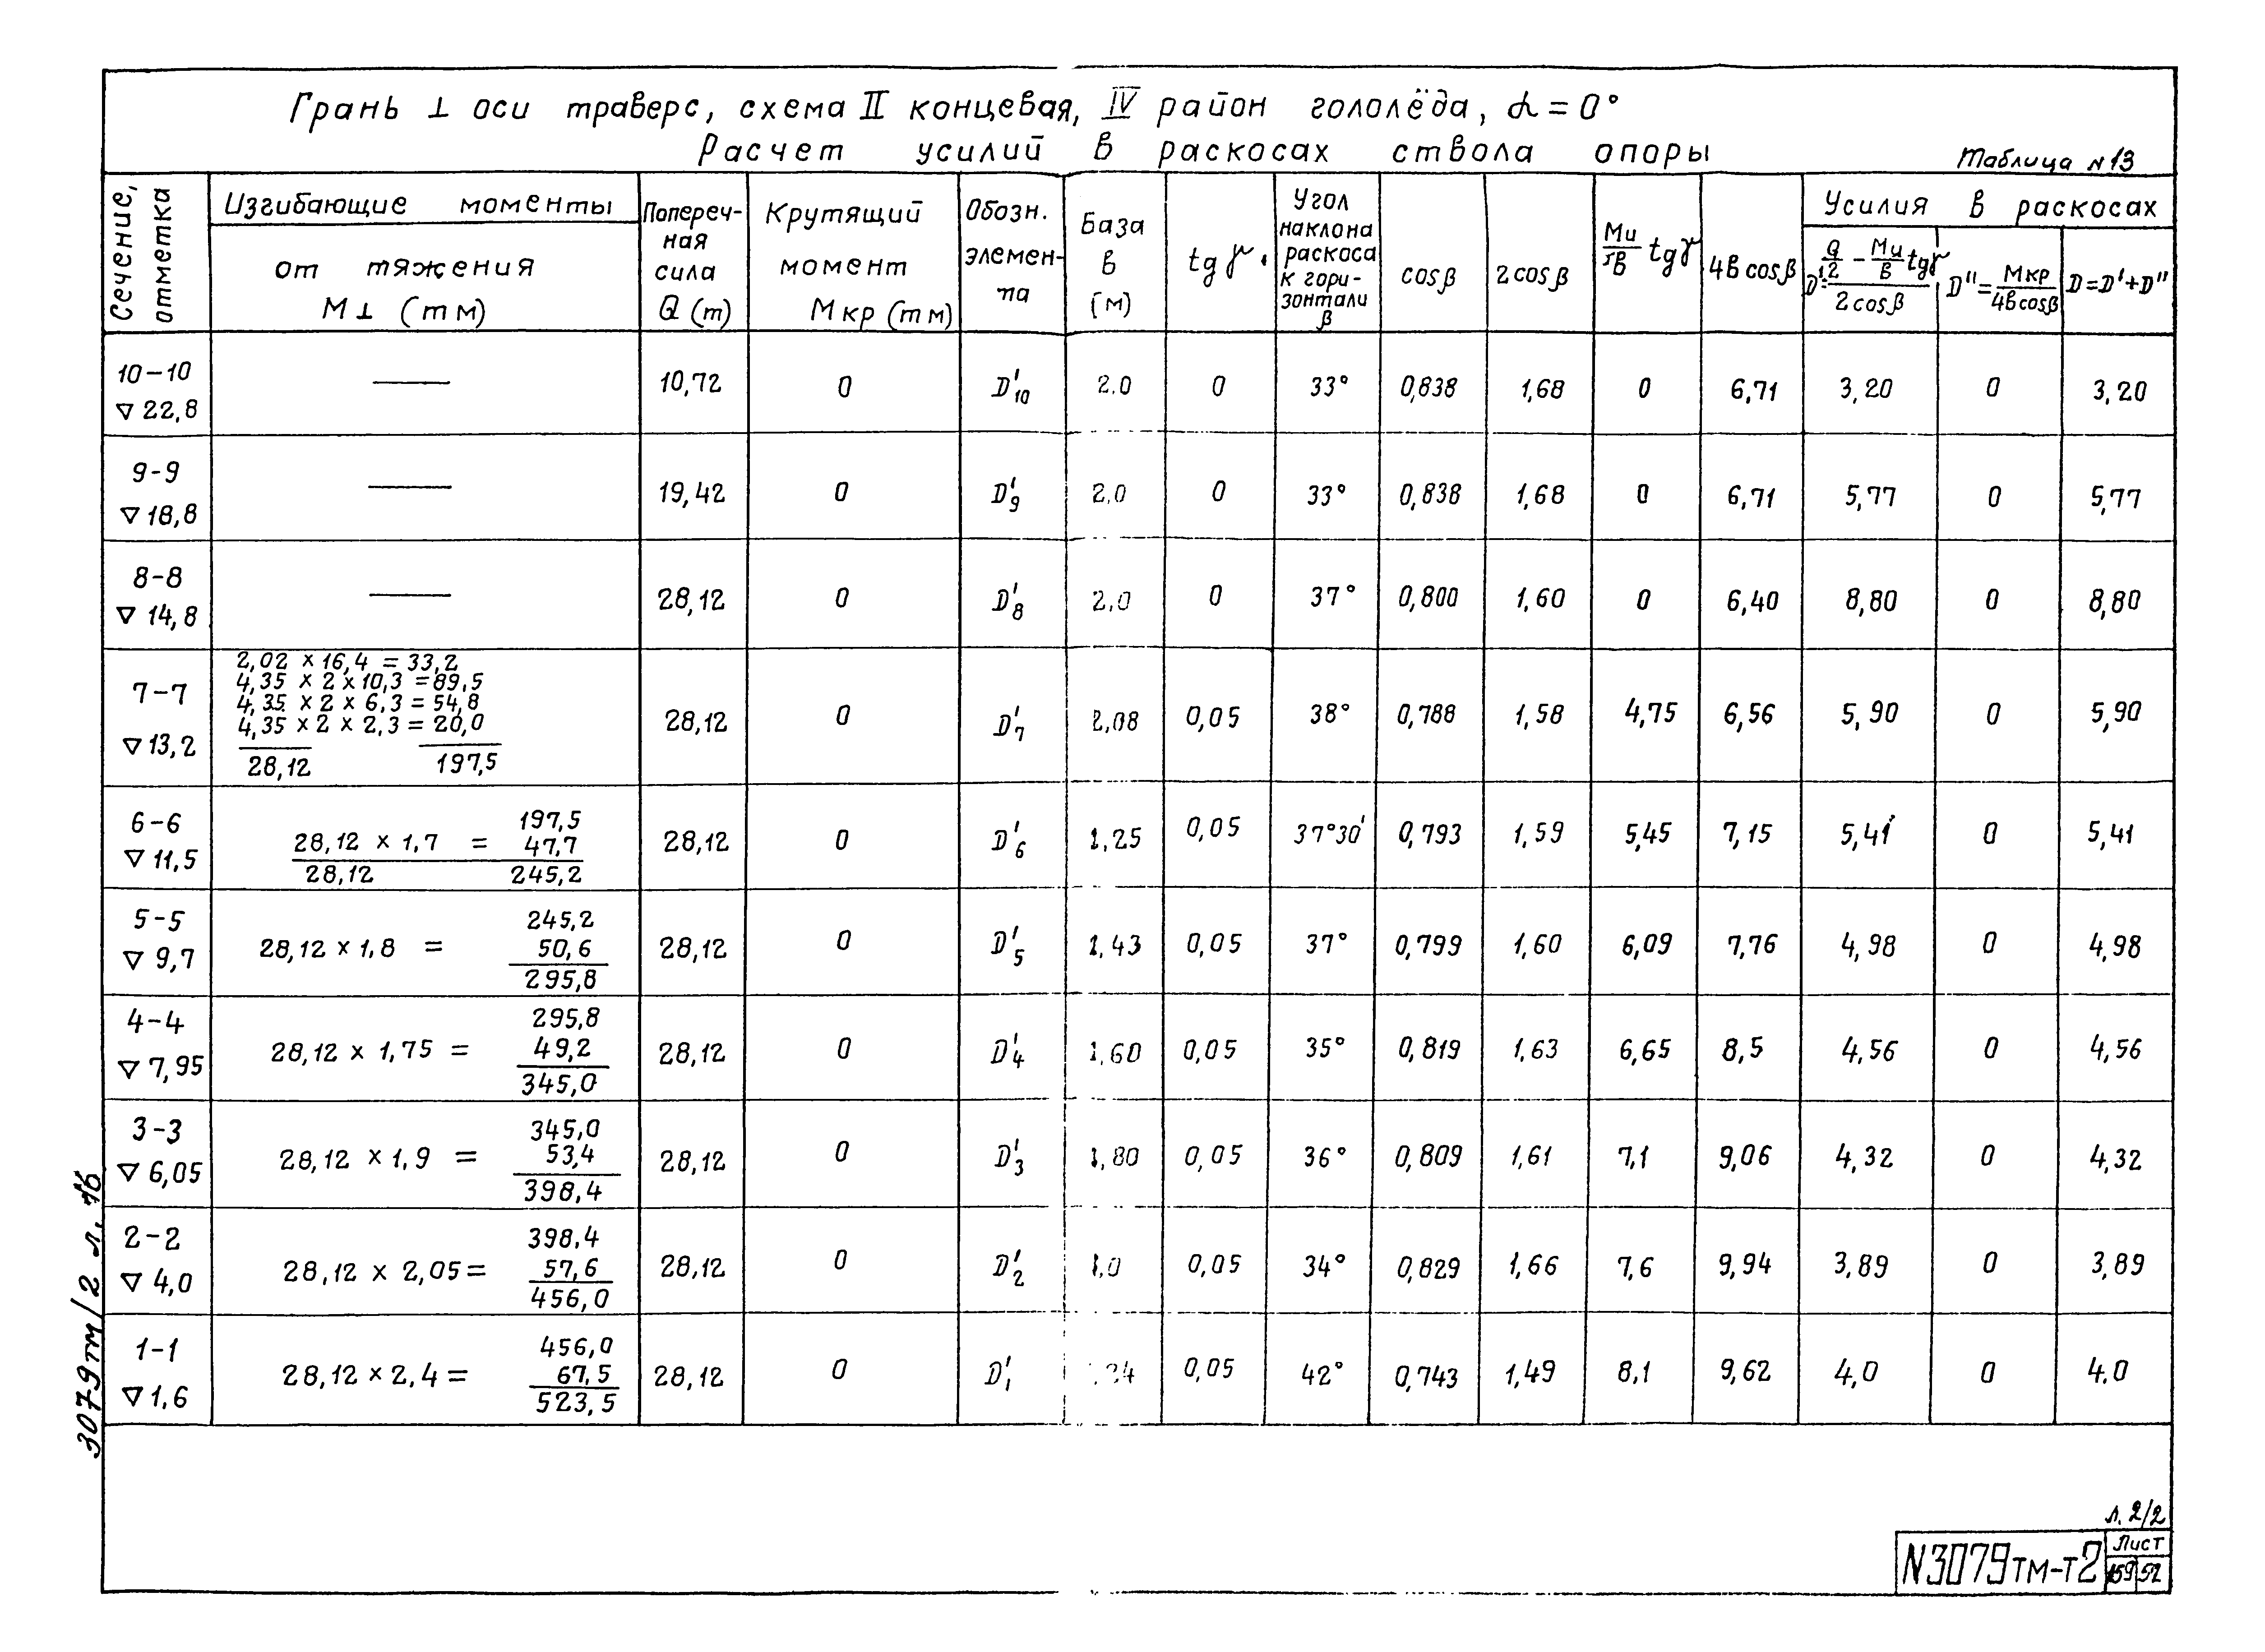 Грань ⊥ оси траверс, схема II концевая, IV район гололёда, α = 0°
Расчет усилий в раскосах ствола опоры
Таблица №13
Сечение, отметка
Изгибающие моменты
от тяжения
M⊥ (тм)
Попереч-
ная
сила
Q (т)
Крутящий
момент
Мкр (тм)
Обозн.
элемен-
та
База
в
(м)
tgγ
Угол
наклона
раскоса
к гори-
зонтали
β
cosβ
2cosβ
Ми/в tgγ
4в cosβ
Усилия в раскосах
D' = (Q/2 − Ми/в tgγ) / 2cosβ
D'' = Мкр / 4вcosβ
D = D' + D''
10-10
▽ 22,8
—
10,72 0 D'10 2,0 0 33° 0,838 1,68 0 6,71 3,20 0 3,20
9-9
▽ 18,8
—
19,42 0 D'9 2,0 0 33° 0,838 1,68 0 6,71 5,77 0 5,77
8-8
▽ 14,8
—
28,12 0 D'8 2,0 0 37° 0,800 1,60 0 6,40 8,80 0 8,80
7-7
▽ 13,2
2,02 × 16,4 = 33,2
4,35 × 2 × 10,3 = 89,5
4,35 × 2 × 6,3 = 54,8
4,35 × 2 × 2,3 = 20,0
28,12 197,5
28,12 0 D'7 2,08 0,05 38° 0,788 1,58 4,75 6,56 5,90 0 5,90
6-6
▽ 11,5
197,5
28,12 × 1,7 = 47,7
28,12 245,2
28,12 0 D'6 ,25 0,05 37°30' 0,793 1,59 5,45 7,15 5,41 0 5,41
5-5
▽ 9,7
245,2
28,12 × 1,8 = 50,6
295,8
28,12 0 D'5 ,43 0,05 37° 0,799 1,60 6,09 7,76 4,98 0 4,98
4-4
▽ 7,95
295,8
28,12 × 1,75 = 49,2
345,0
28,12 0 D'4 ,60 0,05 35° 0,819 1,63 6,65 8,5 4,56 0 4,56
3-3
▽ 6,05
345,0
28,12 × 1,9 = 53,4
398,4
28,12 0 D'3 ,80 0,05 36° 0,809 1,61 7,1 9,06 4,32 0 4,32
2-2
▽ 4,0
398,4
28,12 × 2,05 = 57,6
456,0
28,12 0 D'2 ,0 0,05 34° 0,829 1,66 7,6 9,94 3,89 0 3,89
1-1
▽ 1,6
456,0
28,12 × 2,4 = 67,5
523,5
28,12 0 D'1 0,05 42° 0,743 1,49 8,1 9,62 4,0 0 4.0
3079тм/2 л. 16
л. 2/2
N3079тм-т2
Лист
159 52